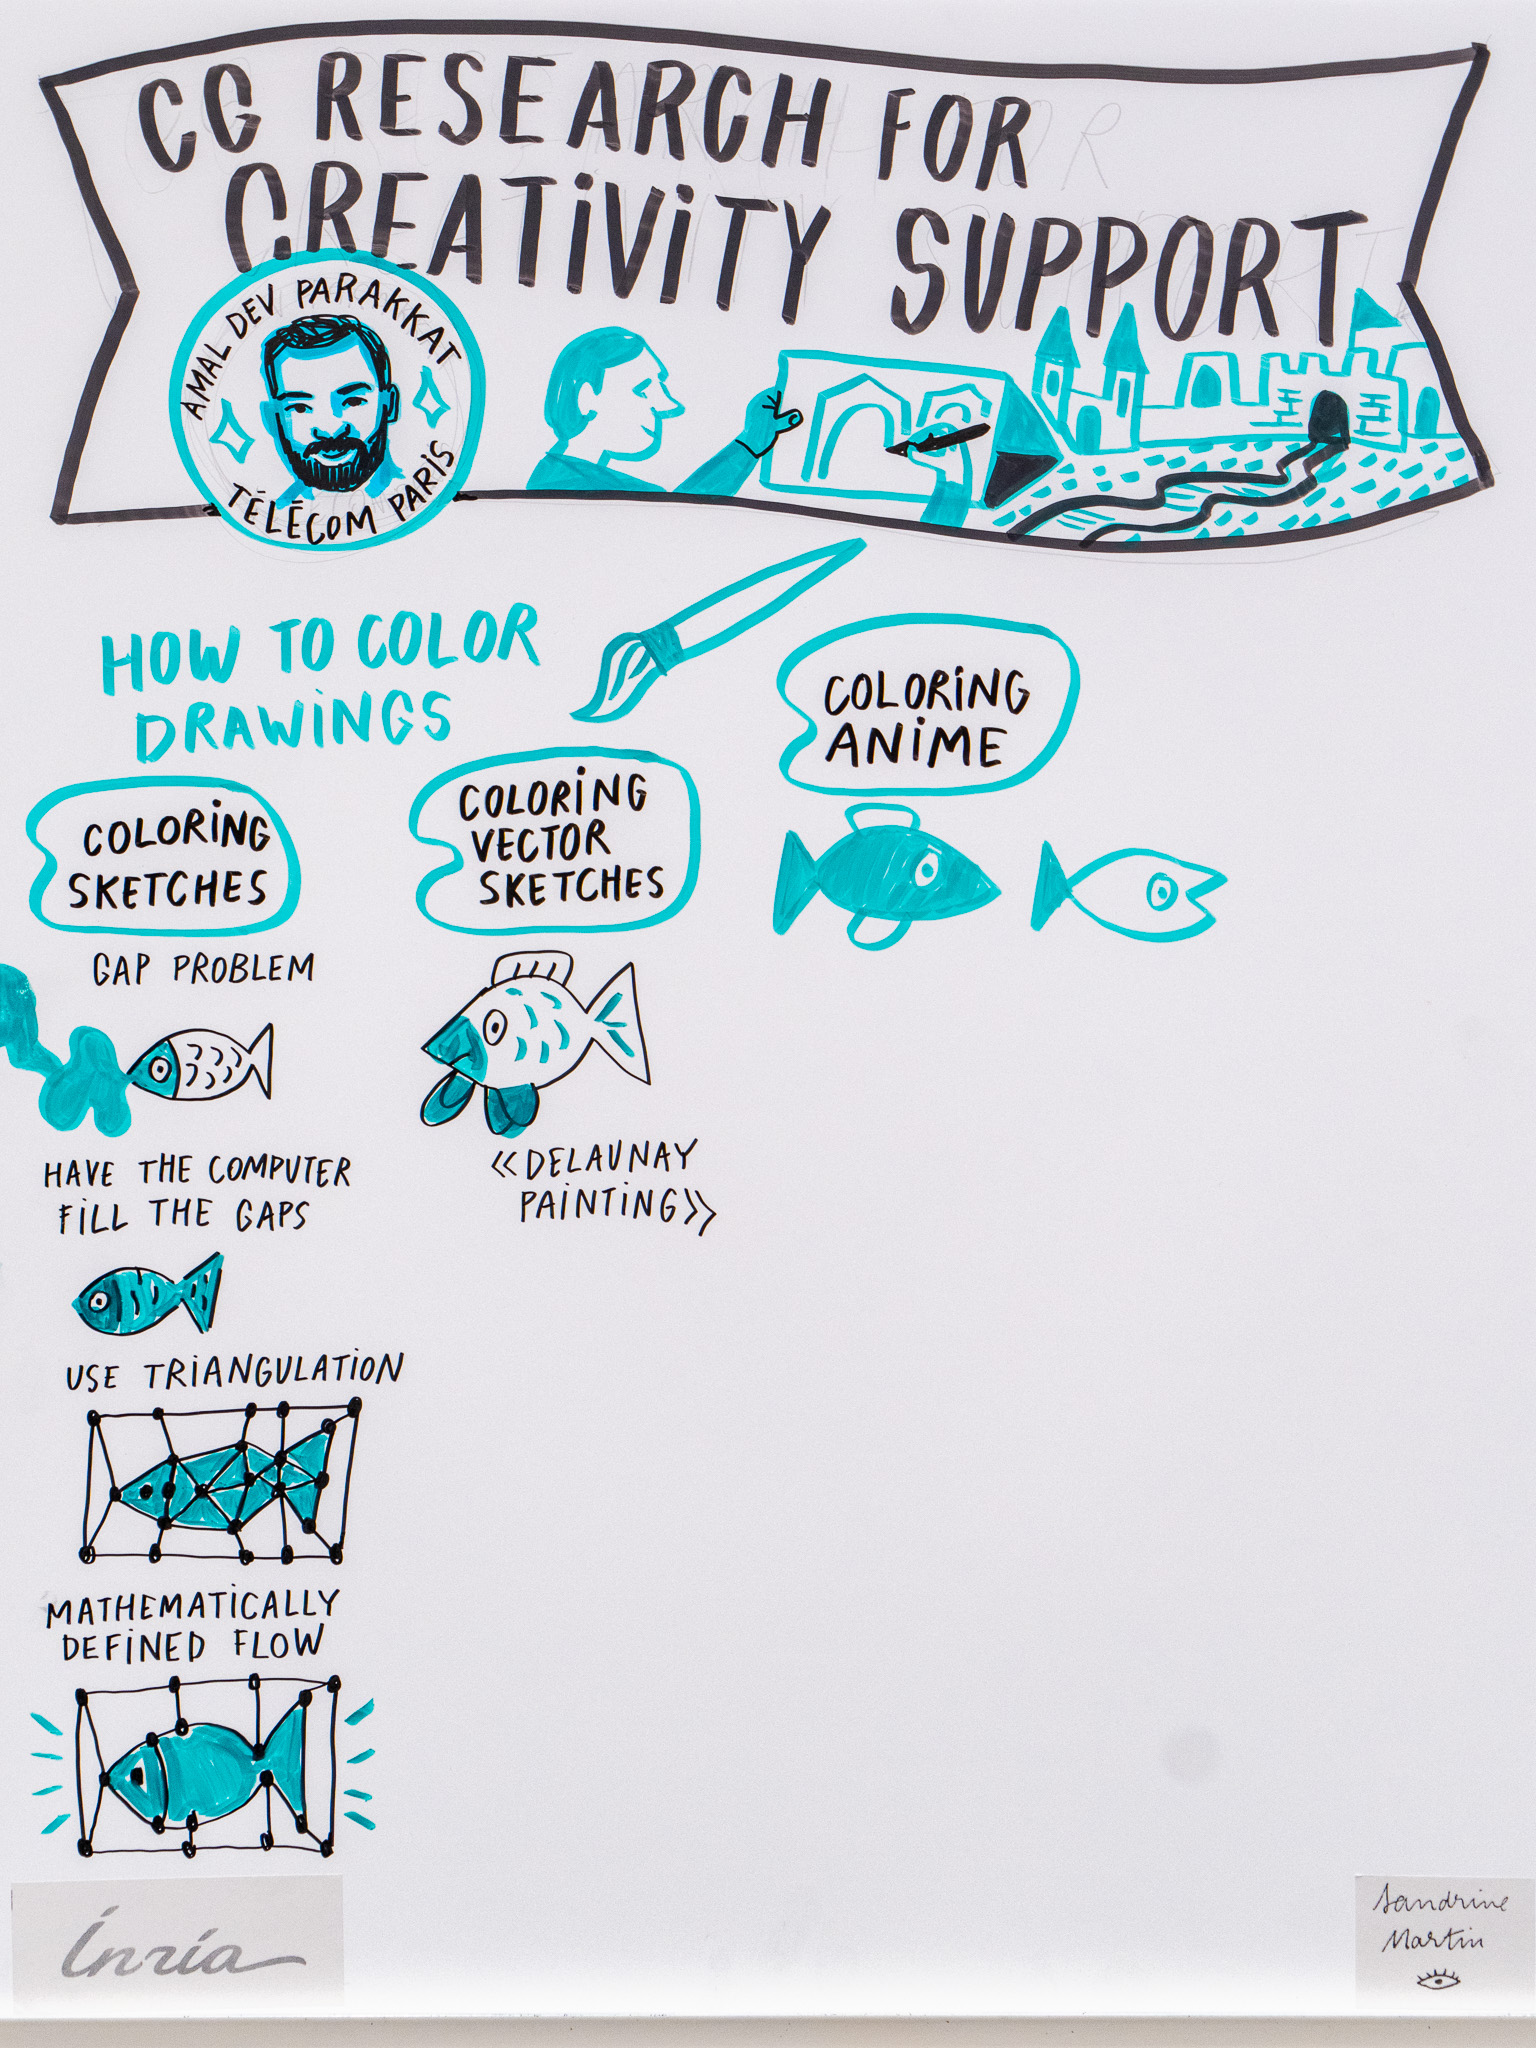 CG RESEARCH FOR
CREATiViTY SUPPORT
AMAL DEV PARAKKAT
TÉLÉCOM PARiS
HOW TO COLOR
DRAWiNGS
COLORiNG
SKETCHES
GAP PROBLEM
HAVE THE COMPUTER
FiLL THE GAPS
USE TRiANGULATiON
MATHEMATiCALLY
DEFiNED FLOW
COLORiNG
VECTOR
SKETCHES
«DELAUNAY
PAiNTiNG»
COLORiNG
ANiME
Inria
Sandrine
Martin